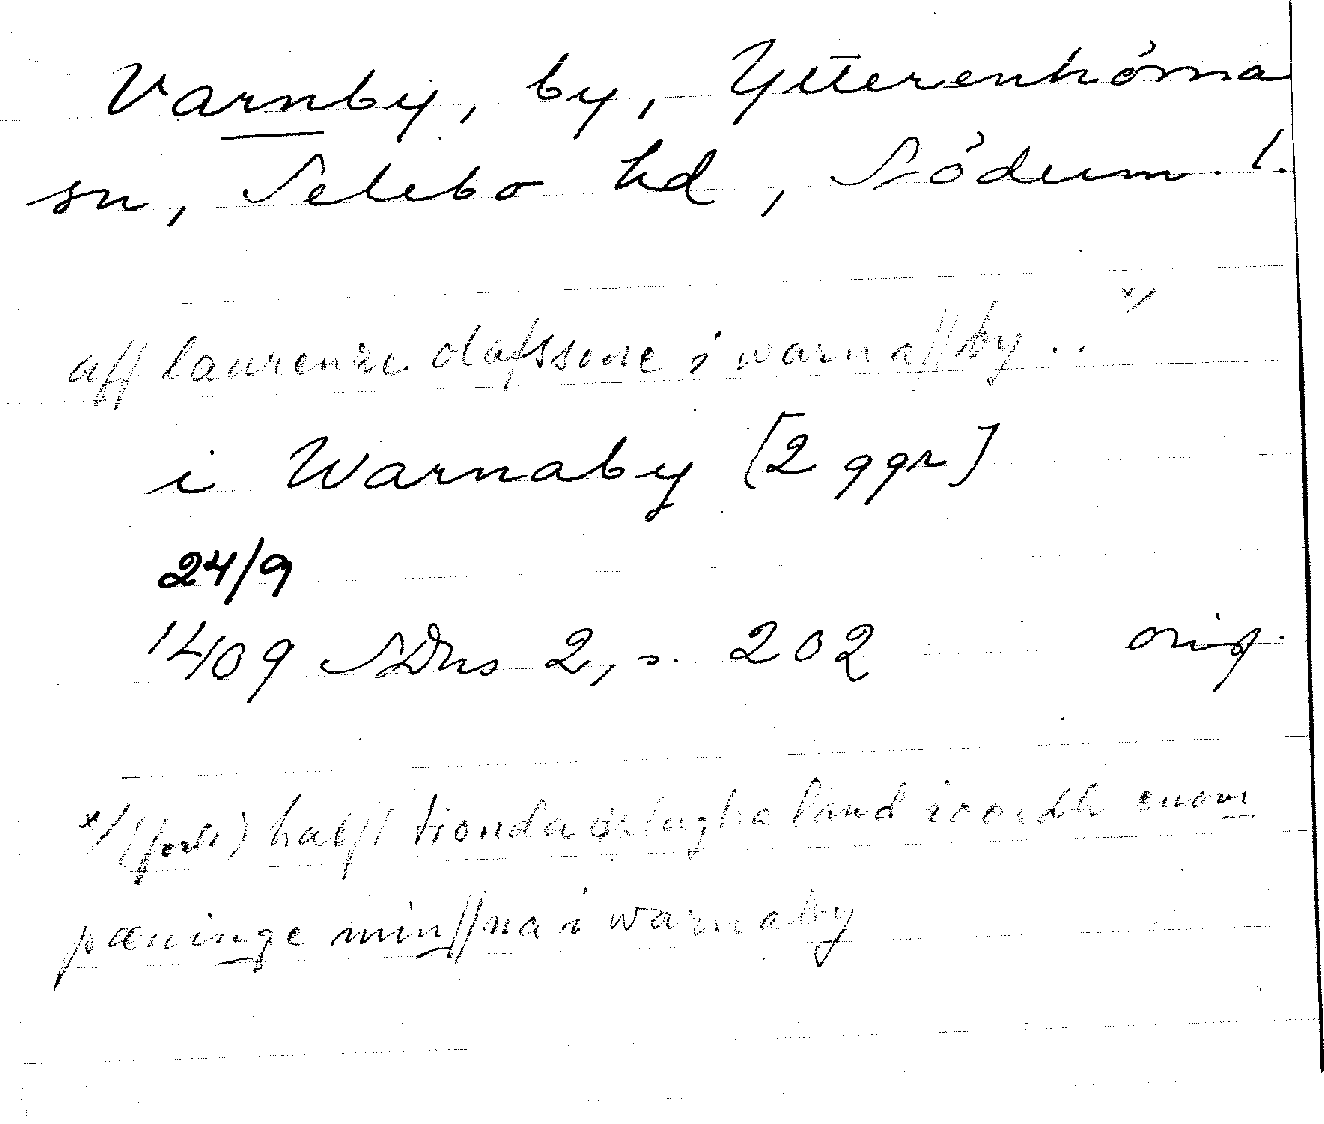 Varnby, by, Ytterenhörna
sn, Selebo hd, Söderm. l.
aff laurenze olafssone i warnaffby .. x/
i Warnaby [2 ggr]
24/9
1409 SDns 2, s. 202 orig.
x/ (forts) halft tionda land iordh enom
pæninge minna i warnaby